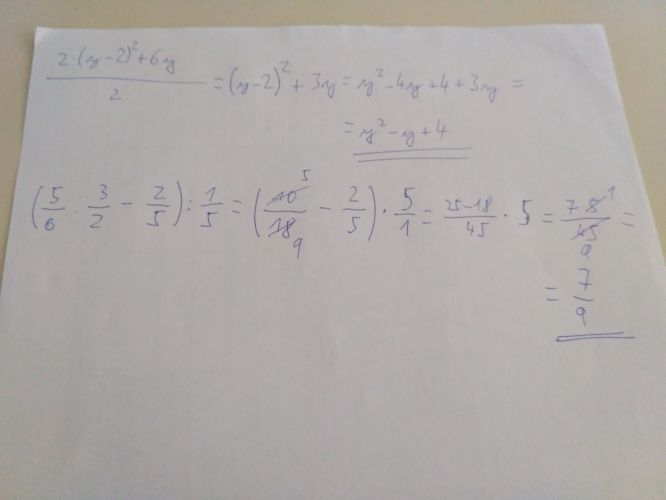 (2·(y-2)²+6y)/2 = (y-2)² + 3y = y² - 4y + 4 + 3y =
= y² - y + 4
(5/6 : 3/2 - 2/5) : 1/5 = (10/18 5/9 - 2/5) · 5/1 = (25-18)/45 · 5 = (7·5 1)/(45 9) =
= 7/9